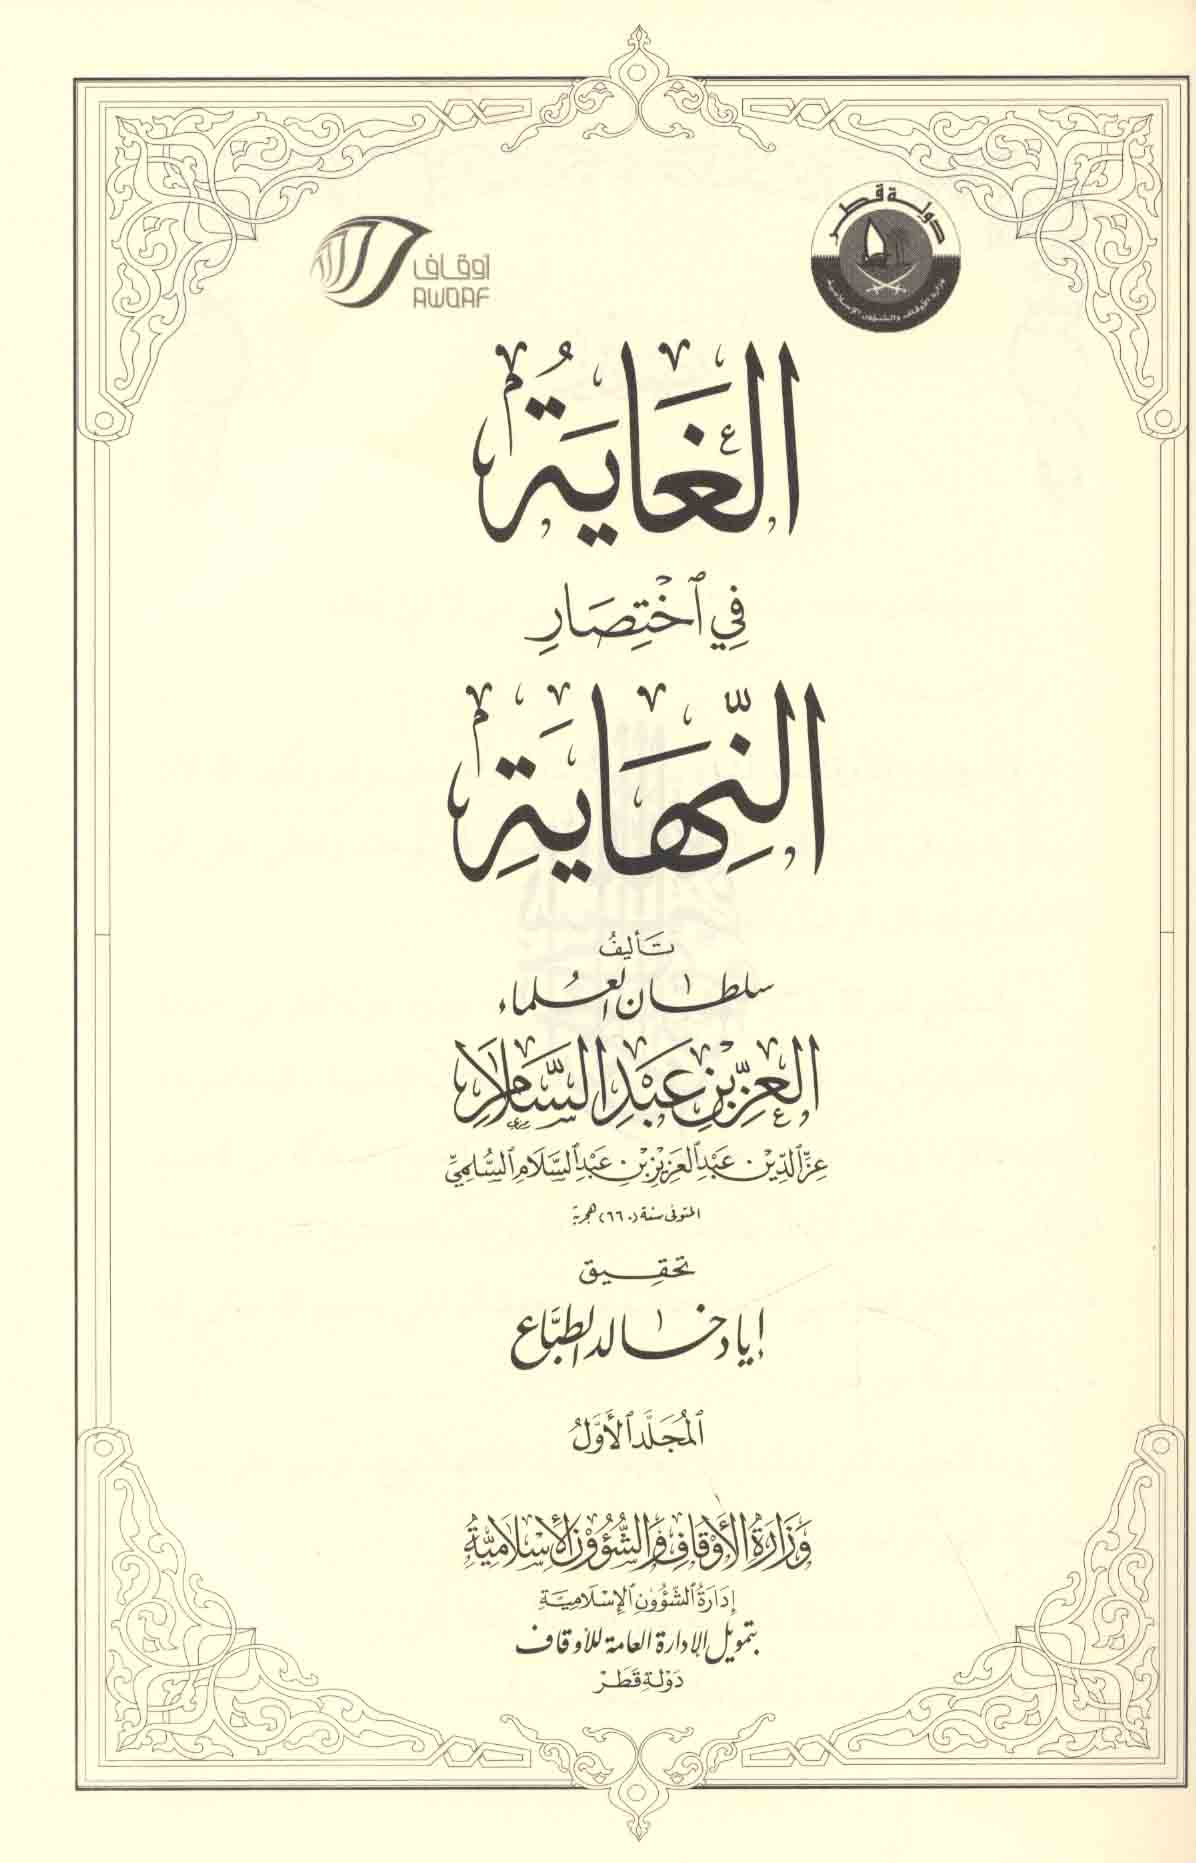 دولة قطر
وزارة الأوقاف والشؤون الإسلامية
أوقاف
AWQAF
الغَايَةُ
فِي اخْتِصَارِ
النِّهَايَةِ
تَأليفُ
سلطان العُلماء
العِزِّ بْنِ عَبْدِ السَّلَامِ
عِزِّ الدِّيْن عَبْدِ العَزِيْزِ بْنِ عَبْدِ السَّلَامِ السُّلَمِيِّ
المتوفى سنة (٦٦٠) هجرية
تحقِيق
إياد خالد الطبَّاع
المُجَلَّد الأَوَّلُ
وَزَارَةُ الأَوْقَافِ وَالشُّؤُوْنِ الإِسْلَامِيَّةِ
إدَارَةُ الشُّؤُونِ الإِسْلَامِيَّةِ
بتمويل الإدارة العامة للأوقاف
دَوْلَة قَطَرْ